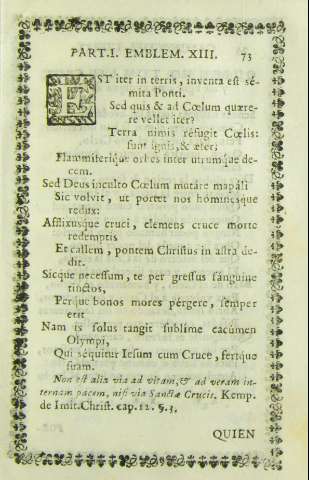 PART.I. EMBLEM. XIII. 73
EST iter in terris, inventa est sé-
mita Ponti.
Sed quis & ad Cœlum quære-
re vellet iter?
Terra nimis réfugit Cœlis:
sunt ignis, & æter;
Flammiferique orbes inter utrumque de-
cem.
Sed Deus inculto Cœlum mutáre mapáli
Sic volvit, ut portet nos hóminesque
redux:
Affixusque cruci, clemens cruce morte
redemptis
Et callem, pontem Christus in astra de-
dit.
Sicque necessum, te per gressus sánguine
tinctos,
Perque bonos mores pérgere, semper
erit
Nam is solus tangit sublíme cacúmen
Olympi,
Qui séquitur Iesum cum Cruce, fertque
suam.
Non est alia via ad vitam, & ad veram in-
ternam pacem, nisi via Sanctæ Crucis. Kemp.
de Imit. Christ. cap. 12. §. 3.
QUIEN